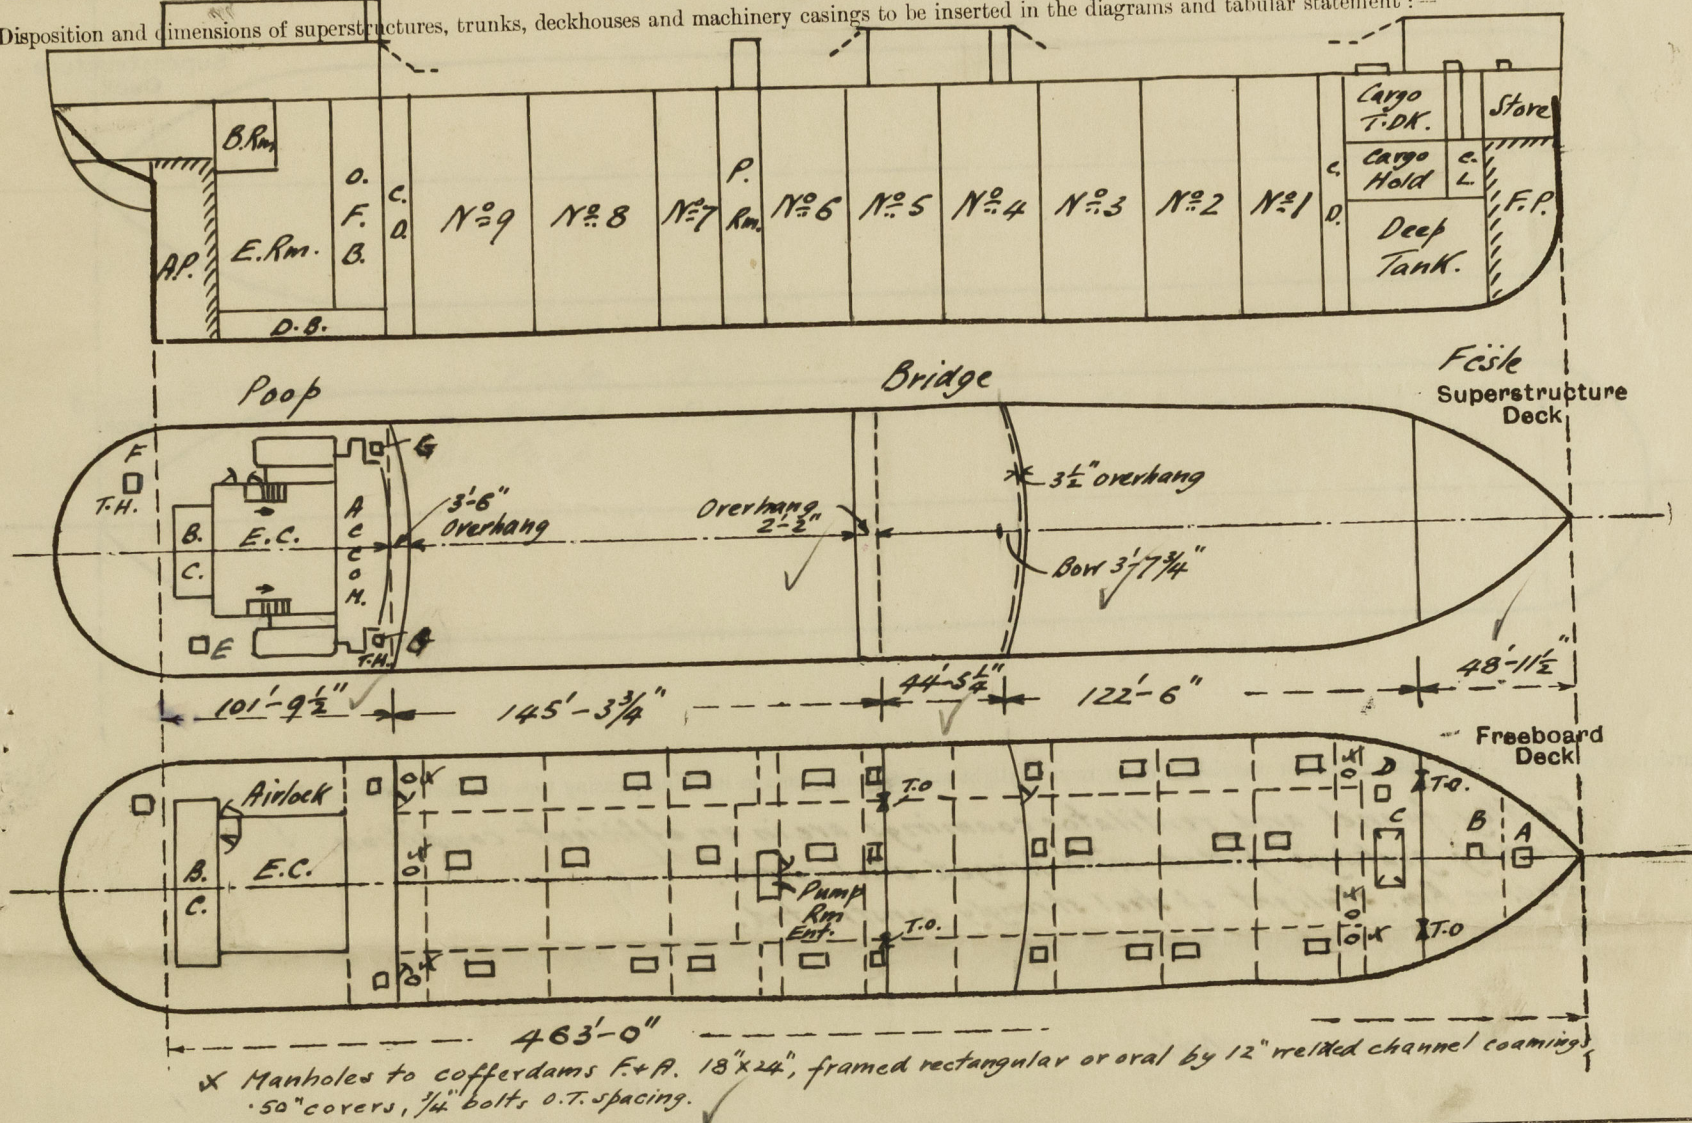 Disposition and dimensions of superstructures, trunks, deckhouses and machinery casings to be inserted in the diagrams and tabular statement :—
B.Rm
A.P.
E.Rm.
O.
F.
B.
D.B.
C.
D.
Nº9
Nº8
Nº7
P.
Rm.
Nº6
Nº5
Nº4
Nº3
Nº2
Nº1
C.
D.
Cargo
T.DK.
Cargo
Hold
C.
L.
Deep
Tank.
Store
F.P.
Poop
Bridge
Fcsle
Superstructure
Deck
F
T.H.
B.
C.
E.C.
A
C
C
O
M.
G
G
T.H.
E
3'-6"
Overhang
Overhang
2'-2"
3½" overhang
Bow 3'-7¾"
101'-9½"
145'-3¾"
44'-5¼"
122'-6"
48'-11½"
Freeboard
Deck
Airlock
B.
C.
E.C.
Pump
Rm
Ent.
T.O
T.O.
D
C
B
A
T.O.
T.O
463'-0"
x Manholes to cofferdams F.+A. 18"x24", framed rectangular or oral by 12" welded channel coamings
.50" covers, ¾" bolts O.T. spacing.